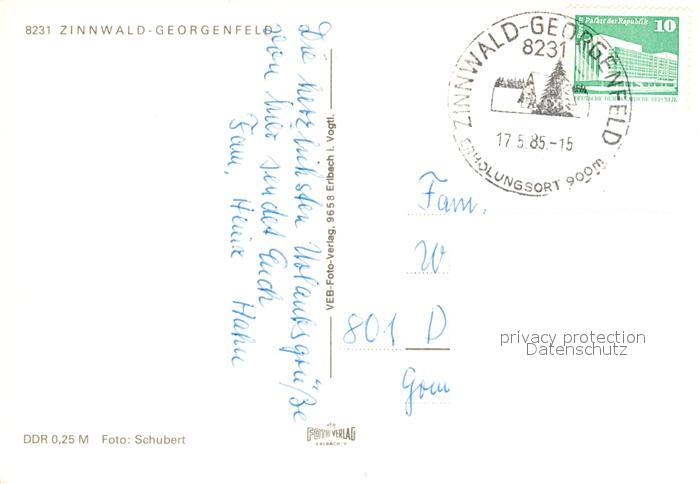 8231 ZINNWALD-GEORGENFELD
Die herzlichsten Urlaubsgrüße
von hier sendet Euch
Fam. Heinz Hahn
VEB-Foto-Verlag, 9658 Erlbach i. Vogtl.
Palast der Republik 10
DEUTSCHE DEMOKRATISCHE REPUBLIK
ZINNWALD-GEORGENFELD
8231
17.5.85.-15
ERHOLUNGSORT 900m
Fam.
W
801 D
Gom
privacy protection
Datenschutz
DDR 0,25 M Foto: Schubert
VEB
FOTO VERLAG
ERLBACH/V.